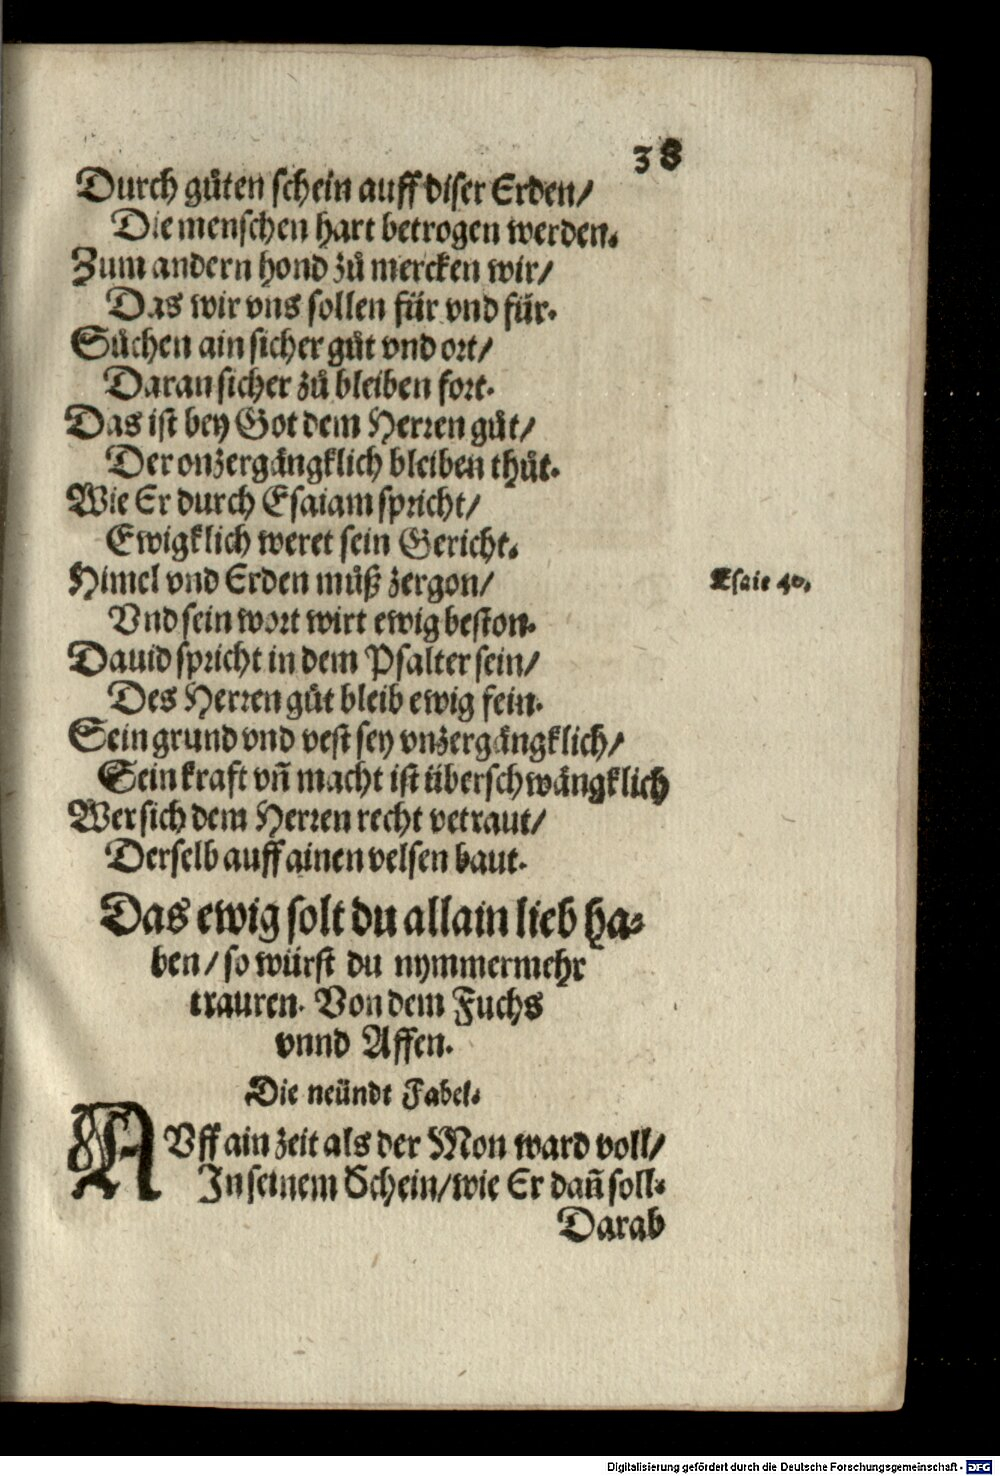 38
Durch gůten schein auff diser Erden/
Die menschen hart betrogen werden.
Zum andern hond zů mercken wir/
Das wir vns sollen für vnd für.
Sůchen ain sicher gůt vnd ort/
Daran sicher zů bleiben fort.
Das ist bey Got dem Herren gůt/
Der onzergängklich bleiben thůt.
Wie Er durch Esaiam spricht/
Ewigklich weret sein Gericht.
Himel vnd Erden můß zergon/
Esaie 40.
Vnd sein wort wirt ewig beston.
Dauid spricht in dem Psalter sein/
Des Herren gůt bleib ewig fein.
Sein grund vnd vest sey vnzergängklich/
Sein kraft vñ macht ist überschwängklich
Wer sich dem Herren recht vetraut/
Derselb auff ainen velsen baut.
Das ewig solt du allain lieb ha-
ben/ so würst du nymmermehr
trauren. Von dem Fuchs
vnnd Affen.
Die neündt Fabel.
AVff ain zeit als der Mon ward voll/
In seinem Schein/ wie Er dañ soll.
Darab
Digitalisierung gefördert durch die Deutsche Forschungsgemeinschaft - DFG